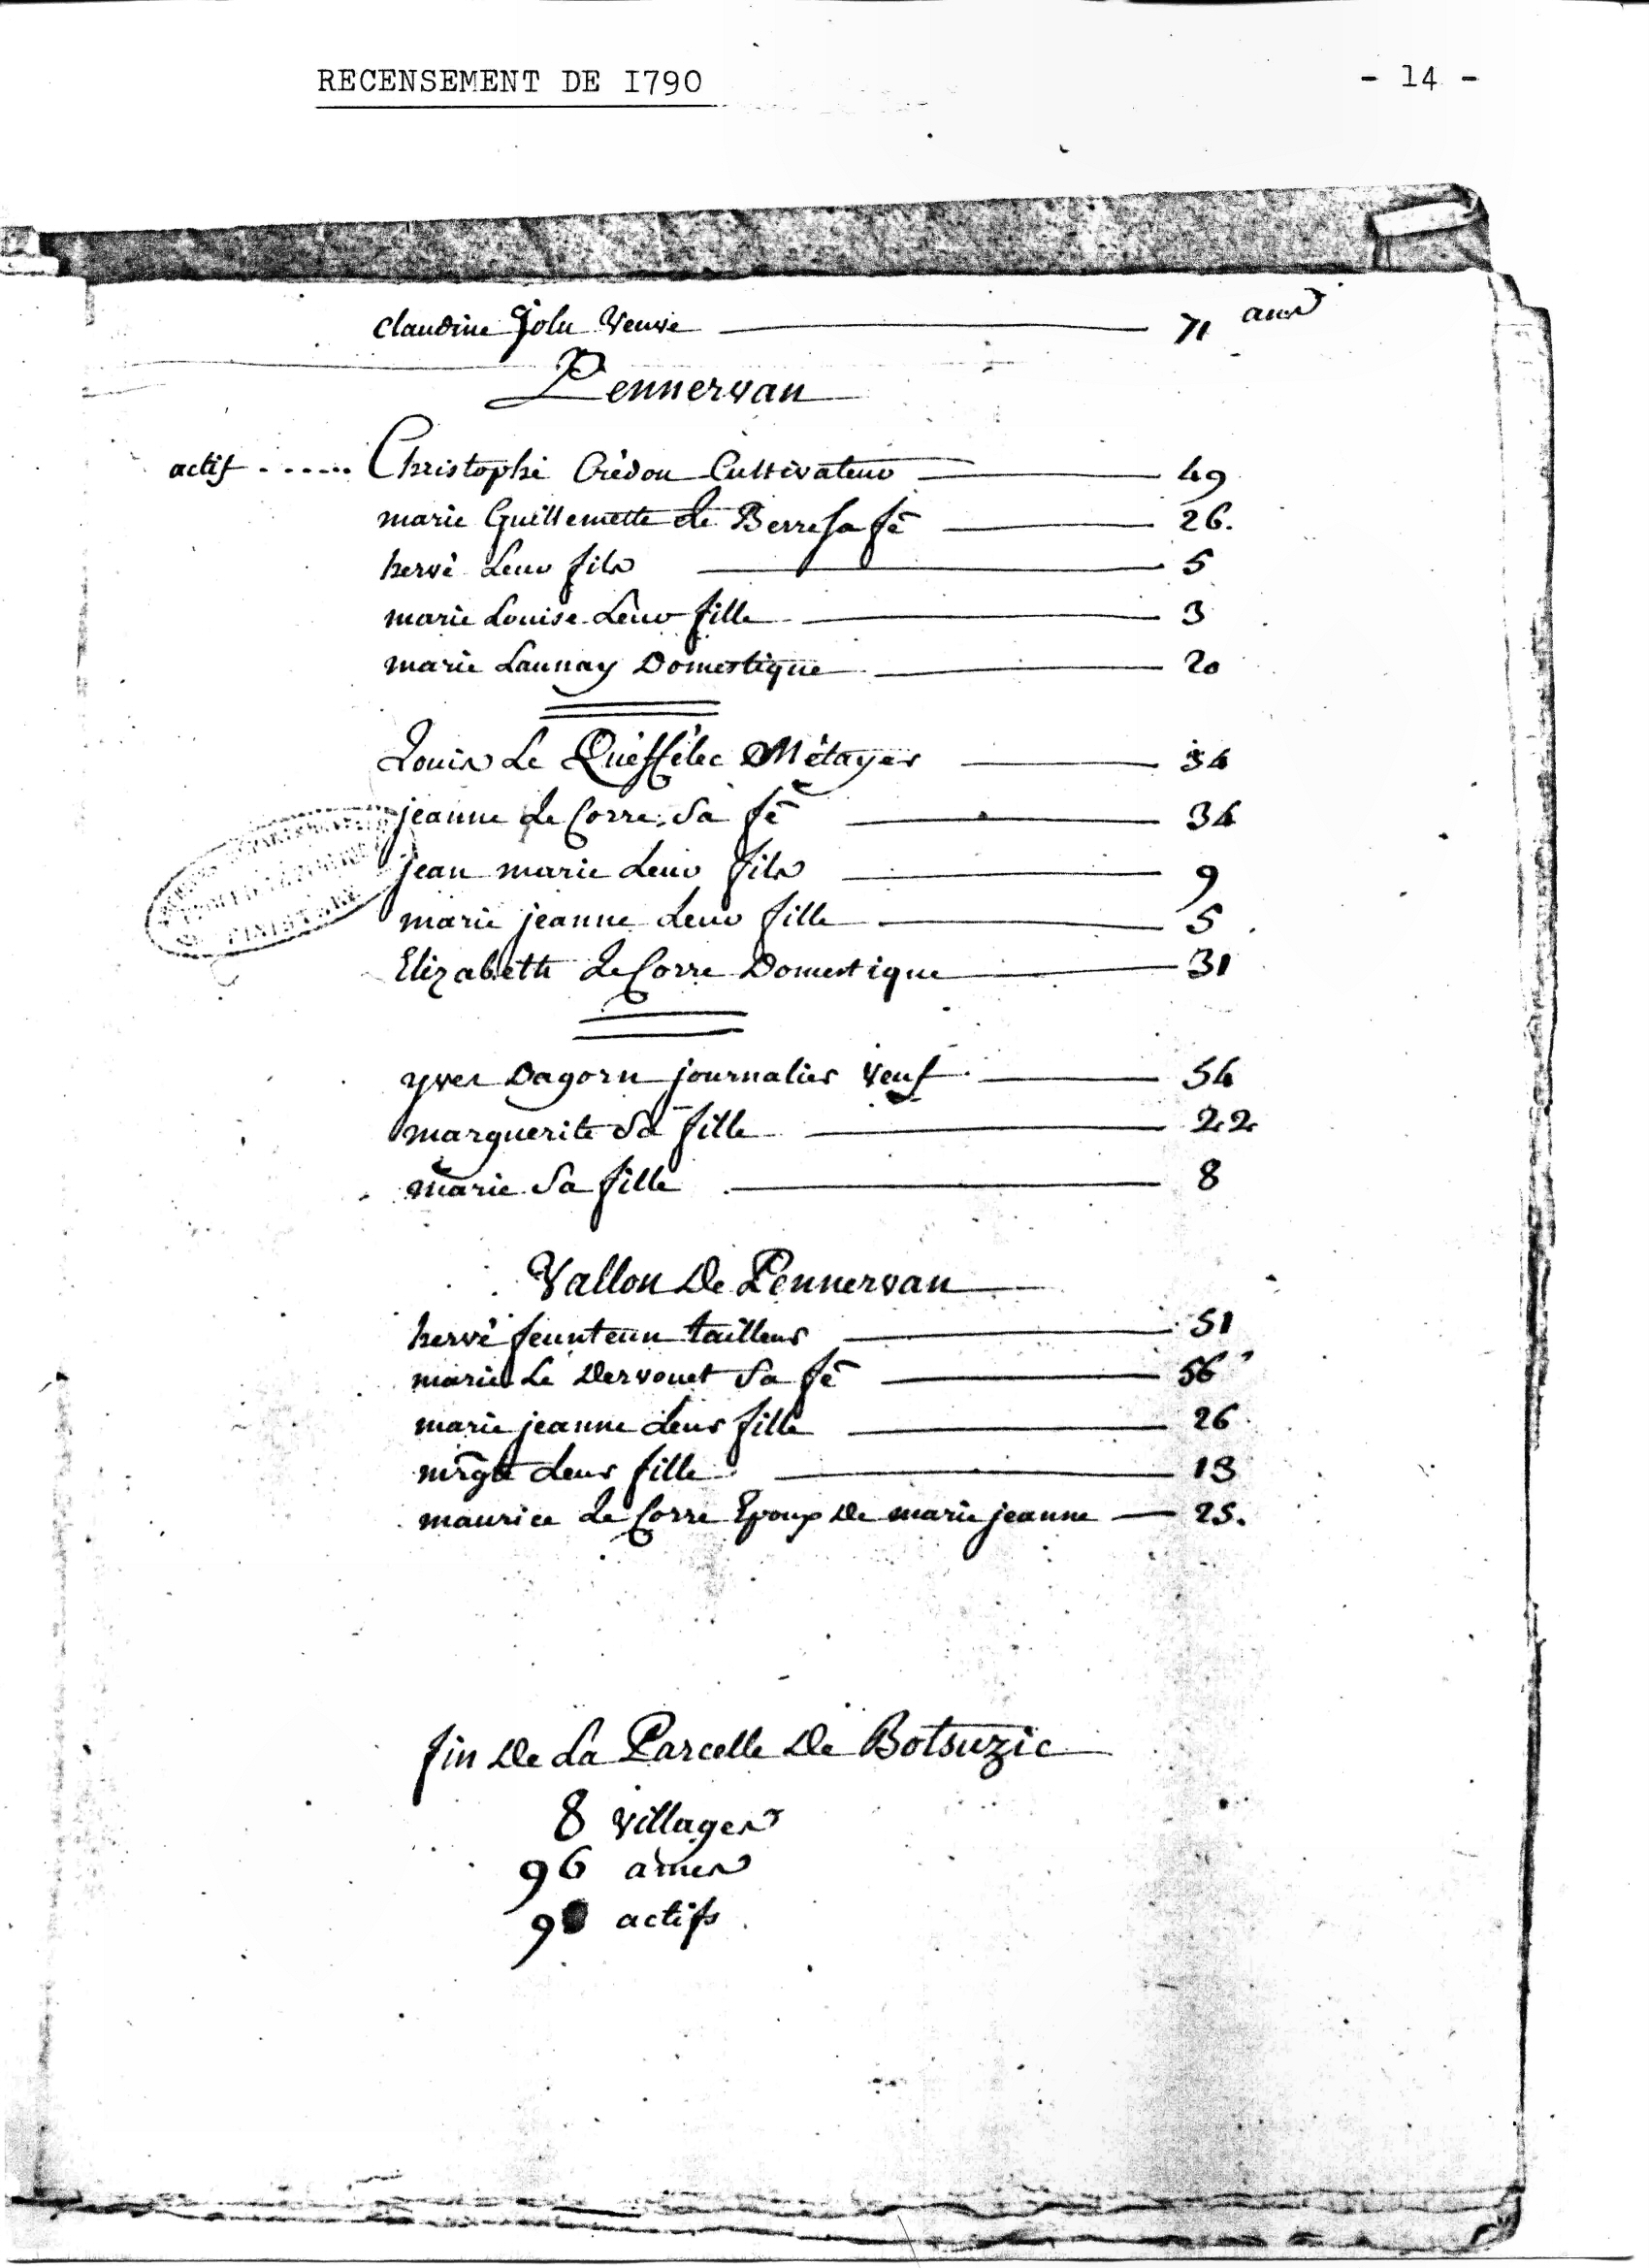 RECENSEMENT DE I790
- 14 -
claudine Jolu Veuve 71 ans
Pennervan
actif ...... Christophe Crédou Cultivateur 49
marie Guillemette Le Berre sa fē 26.
hervé Leur fils 5
marie Louise Leur fille 3
marie Launay Domestique 20
Louis Le Quéffélec Métayer 34
jeanne Le Corre Sa fē 34
jean marie Leur fils 9
marie jeanne Leur fille 5
Elizabeth Le Corre Domestique 31
yves Dagorn journalier Veuf 54
marguerite Sa fille 22
marie Sa fille 8
Vallon De Pennervan
hervé feunteun tailleur 51
marie Le Dervouet Sa fē 56
marie jeanne Leur fille 26
mrgte Leur fille 13
maurice Le Corre Epoux De marie jeanne 25.
fin De La Parcelle De Botsuzic
8 villages
96 ames
9 actifs
FINISTERE